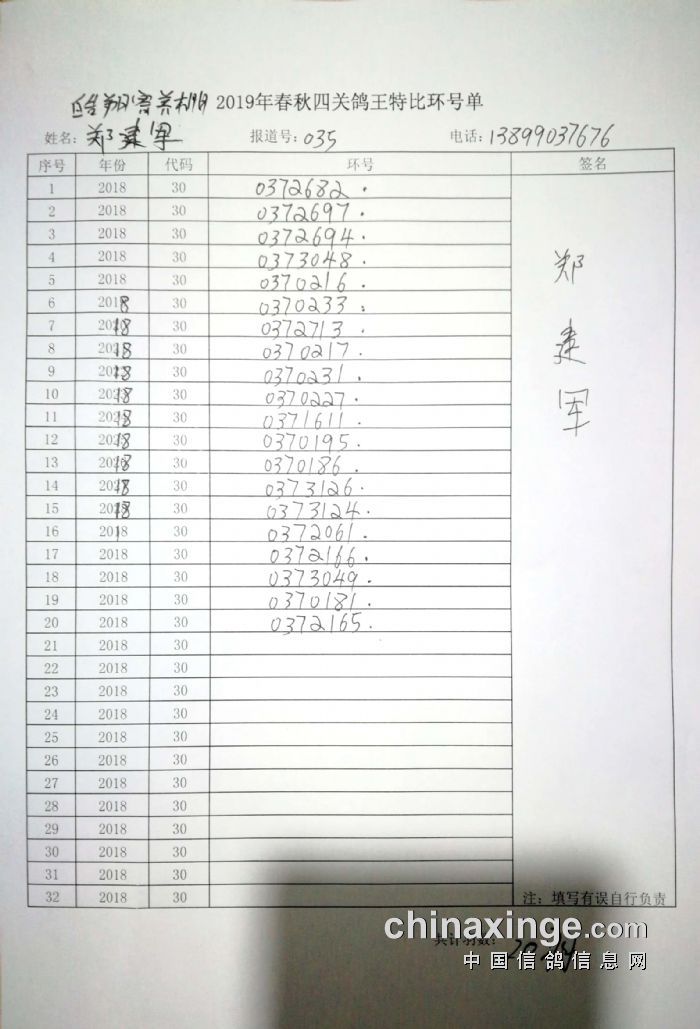 皓翔寄养棚 2019年春秋四关鸽王特比环号单
姓名：郑建军 报道号：035 电话：13899037676
序号 年份 代码 环号 签名
1 2018 30 0372682.
2 2018 30 0372697.
3 2018 30 0372694.
4 2018 30 0373048.
5 2018 30 0370216.
6 2018 30 0370233.
7 2018 30 0372713.
8 2018 30 0370217.
9 2018 30 0370231.
10 2018 30 0370227.
11 2018 30 0371611.
12 2018 30 0370195.
13 2018 30 0370186.
14 2018 30 0373126.
15 2018 30 0373124.
16 2018 30 0372061.
17 2018 30 0372166.
18 2018 30 0373049.
19 2018 30 0370181.
20 2018 30 0372165.
21 2018 30
22 2018 30
23 2018 30
24 2018 30
25 2018 30
26 2018 30
27 2018 30
28 2018 30
29 2018 30
30 2018 30
31 2018 30
32 2018 30
郑建军
注：填写有误自行负责
共计羽数：20羽
chinaxinge.com
中国信鸽信息网